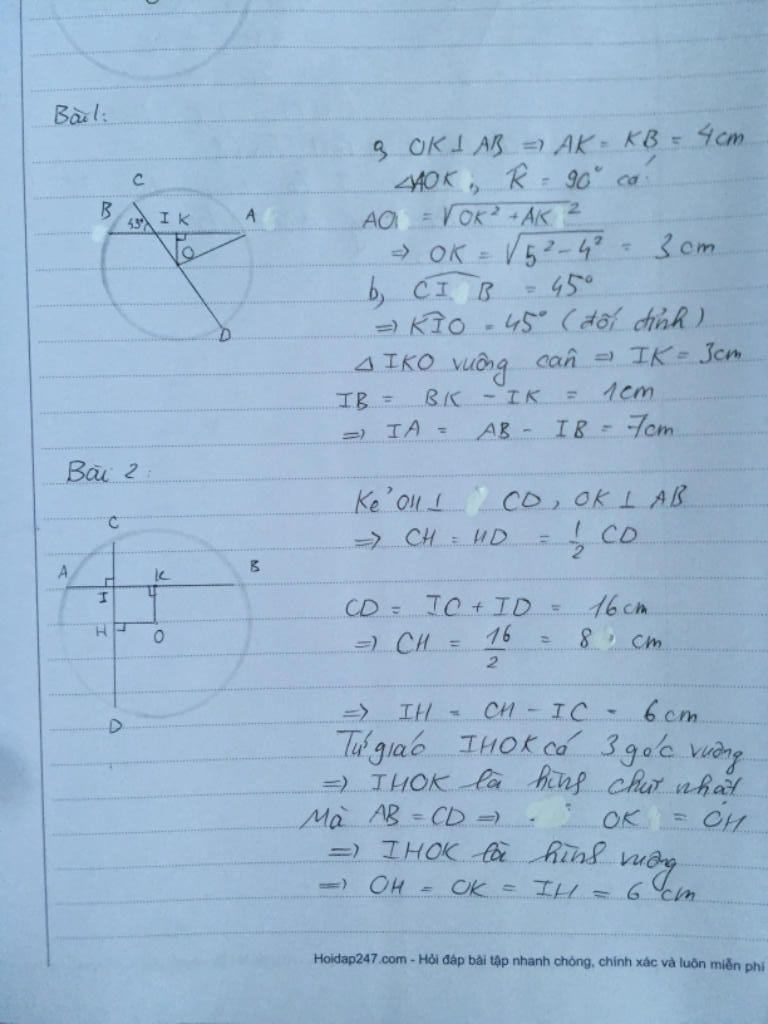 Bài 1:
a, OK⊥AB => AK = KB = 4cm
△AOK, K̂ = 90° có:
AO = √OK² + AK²
=> OK = √5² - 4² = 3 cm
b, CIB = 45°
=> KIO = 45° (đối đỉnh)
△ IKO vuông cân => IK = 3cm
IB = BK - IK = 1cm
=> IA = AB - IB = 7cm
C
B
45°
I K
A
O
D
Bài 2:
Kẻ OH⊥ CD, OK⊥ AB
=> CH = HD = 1/2 CD
CD = IC + ID = 16cm
=> CH = 16/2 = 8 cm
=> IH = CH - IC = 6cm
Tứ giác IHOK có 3 góc vuông
=> IHOK là hình chữ nhật
Mà AB = CD => OK = OH
=> IHOK là hình vuông
=> OH = OK = IH = 6 cm
C
A
K
B
I
H
O
D
Hoidap247.com - Hỏi đáp bài tập nhanh chóng, chính xác và luôn miễn phí